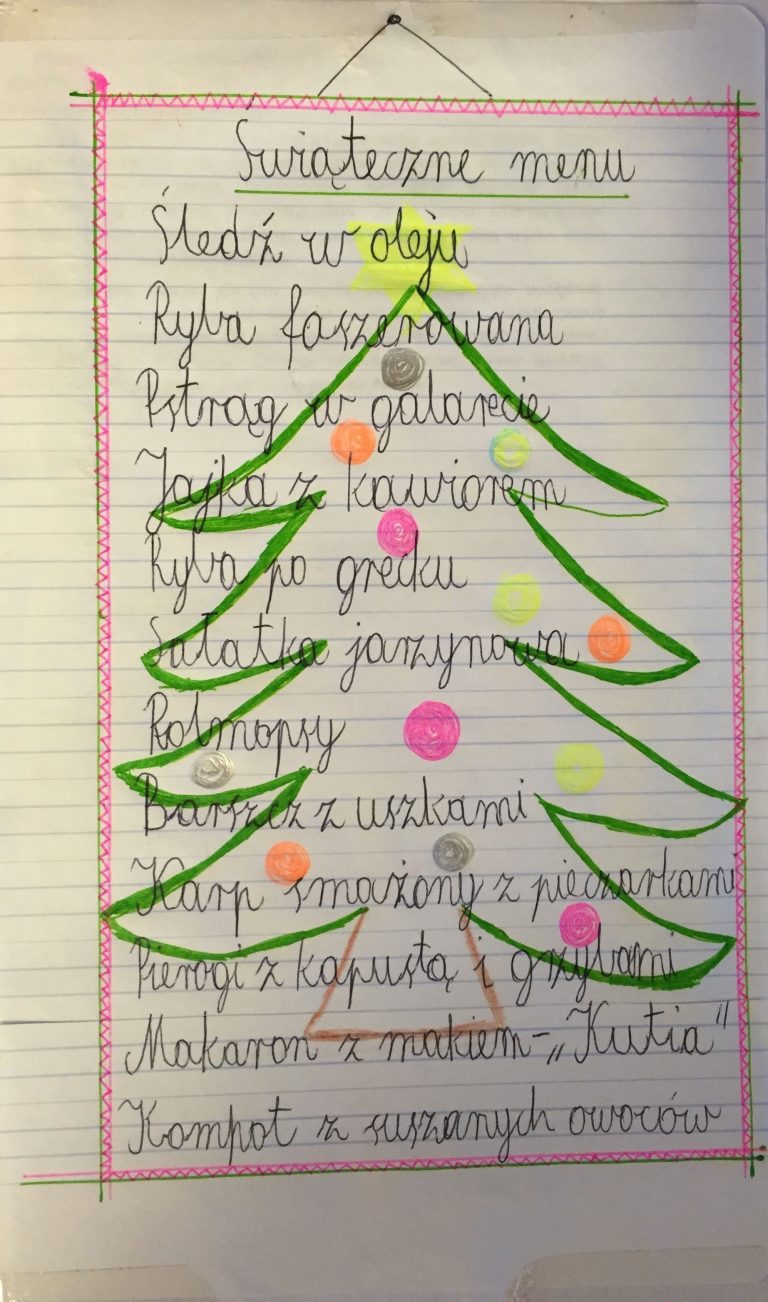 Świąteczne menu
Śledź w oleju
Ryba faszerowana
Pstrąg w galarecie
Jajka z kawiorem
Ryba po grecku
Sałatka jarzynowa
Rolmopsy
Barszcz z uszkami
Karp smażony z pieczarkami
Pierogi z kapustą i grzybami
Makaron z makiem - „Kutia”
Kompot z suszanych owoców